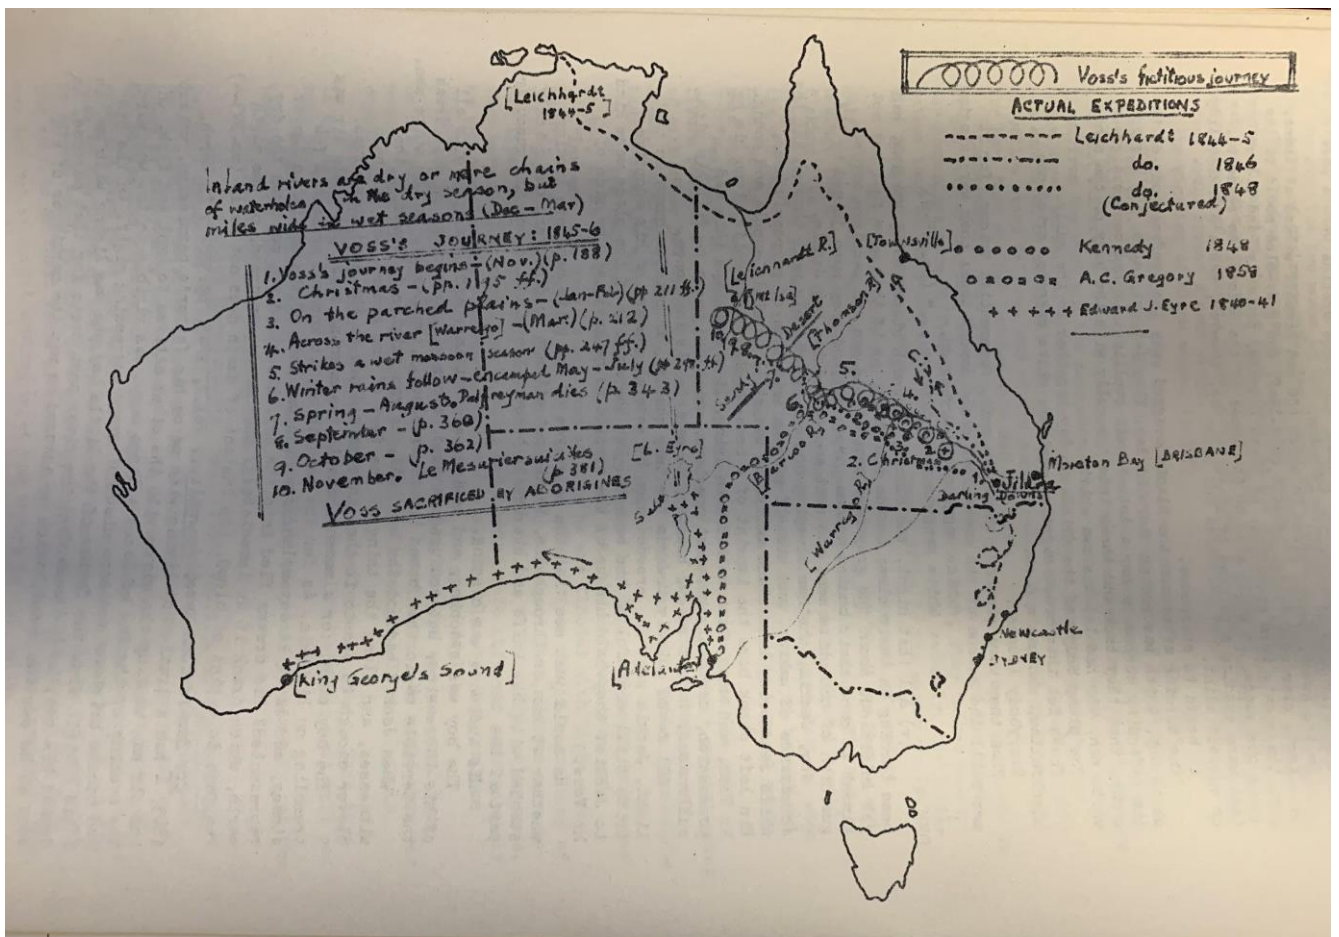 Voss's fictitious journey
ACTUAL EXPEDITIONS
Leichhardt 1844-5
do. 1846
do. 1848
(Conjectured)
Kennedy 1848
A.C. Gregory 1858
Edward J. Eyre 1840-41
[Leichhardt
1844-5]
Inland rivers are dry or mere chains
of waterholes in the dry season, but
miles wide in wet seasons (Dec-Mar)
VOSS'S JOURNEY: 1845-6
1. Voss's journey begins - (Nov.) (p. 188)
2. Christmas - (pp. 195 ff.)
3. On the parched plains - (Jan-Feb) (pp 211 ff.)
4. Across the river [Warrego] - (Mar.) (p. 212)
5. Strikes a wet monsoon season (pp. 247 ff.)
6. Winter rains follow - encamped May - July (pp ff)
7. Spring - August. Palfreyman dies (p. 343)
8. September - (p. 360)
9. October - p. 362)
10. November. Le Mesurier suicides
(p. 381)
VOSS SACRIFICED BY ABORIGINES
[Leichhardt R.]
[Townsville]
Desert
Sandy
[Thomson R.]
5.
4.
6.
7
8
9
10
3
2
1
2. Christmas
[Barcoo R.]
[L. Eyre]
[Warrego R.]
Moreton Bay [BRISBANE]
Jildra
Darling Downs
Newcastle
SYDNEY
[Adelaide
[King George's Sound]